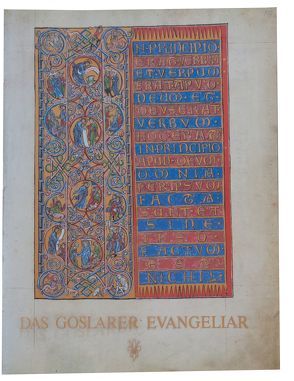 N PRINCIPIO
ERAT VERBUM
ET VERBUM
ERAT APUD
DEUM ET
DEUS ERAT
VERBUM
HOC ERAT
IN PRINCIPIO
APUD DEUM
OMNIA
PER IPSUM
FACTA
SUNT ET
SINE
FACTUM
NICHIL
DAS GOSLARER EVANGELIAR